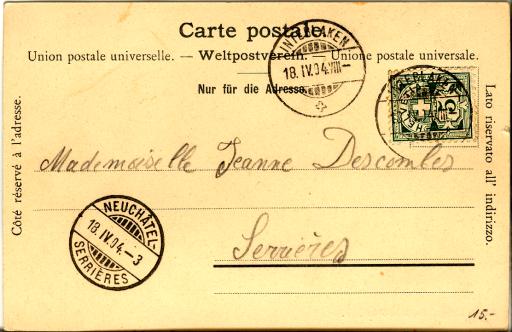 Carte postale.
Union postale universelle. — Weltpostverein. — Unione postale universale.
Nur für die Adresse.
INTERLAKEN
18.IV.04.VIII—
5
Côté réservé à l'adresse.
Lato riservato all' indirizzo.
Mademoiselle Jeanne Descombes
Serrières
NEUCHÂTEL-
18.IV.04.—3
SERRIÈRES
15.-